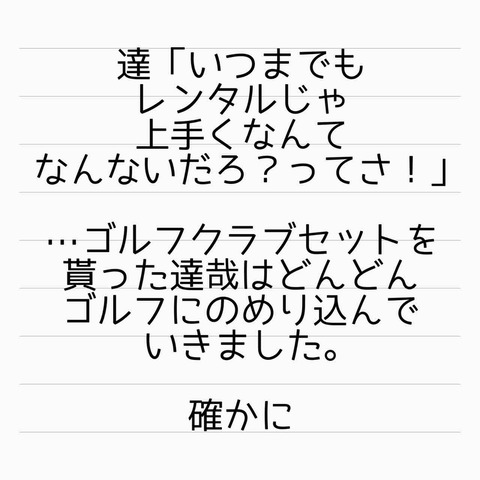 達「いつまでも
レンタルじゃ
上手くなんて
なんないだろ？ってさ！」
…ゴルフクラブセットを
貰った達哉はどんどん
ゴルフにのめり込んで
いきました。
確かに